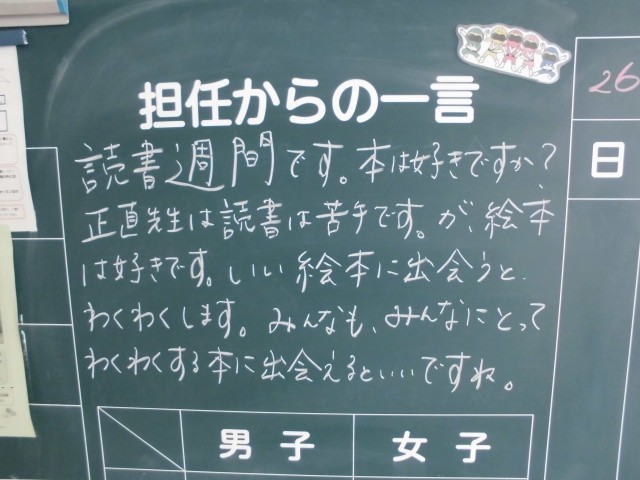 担任からの一言
26
日
読書週間です。本は好きですか?
正直先生は読書は苦手です。が、絵本
は好きです。いい絵本に出会うと、
わくわくします。みんなも、みんなにとって
わくわくする本に出会えるといいですね。
男子 女子